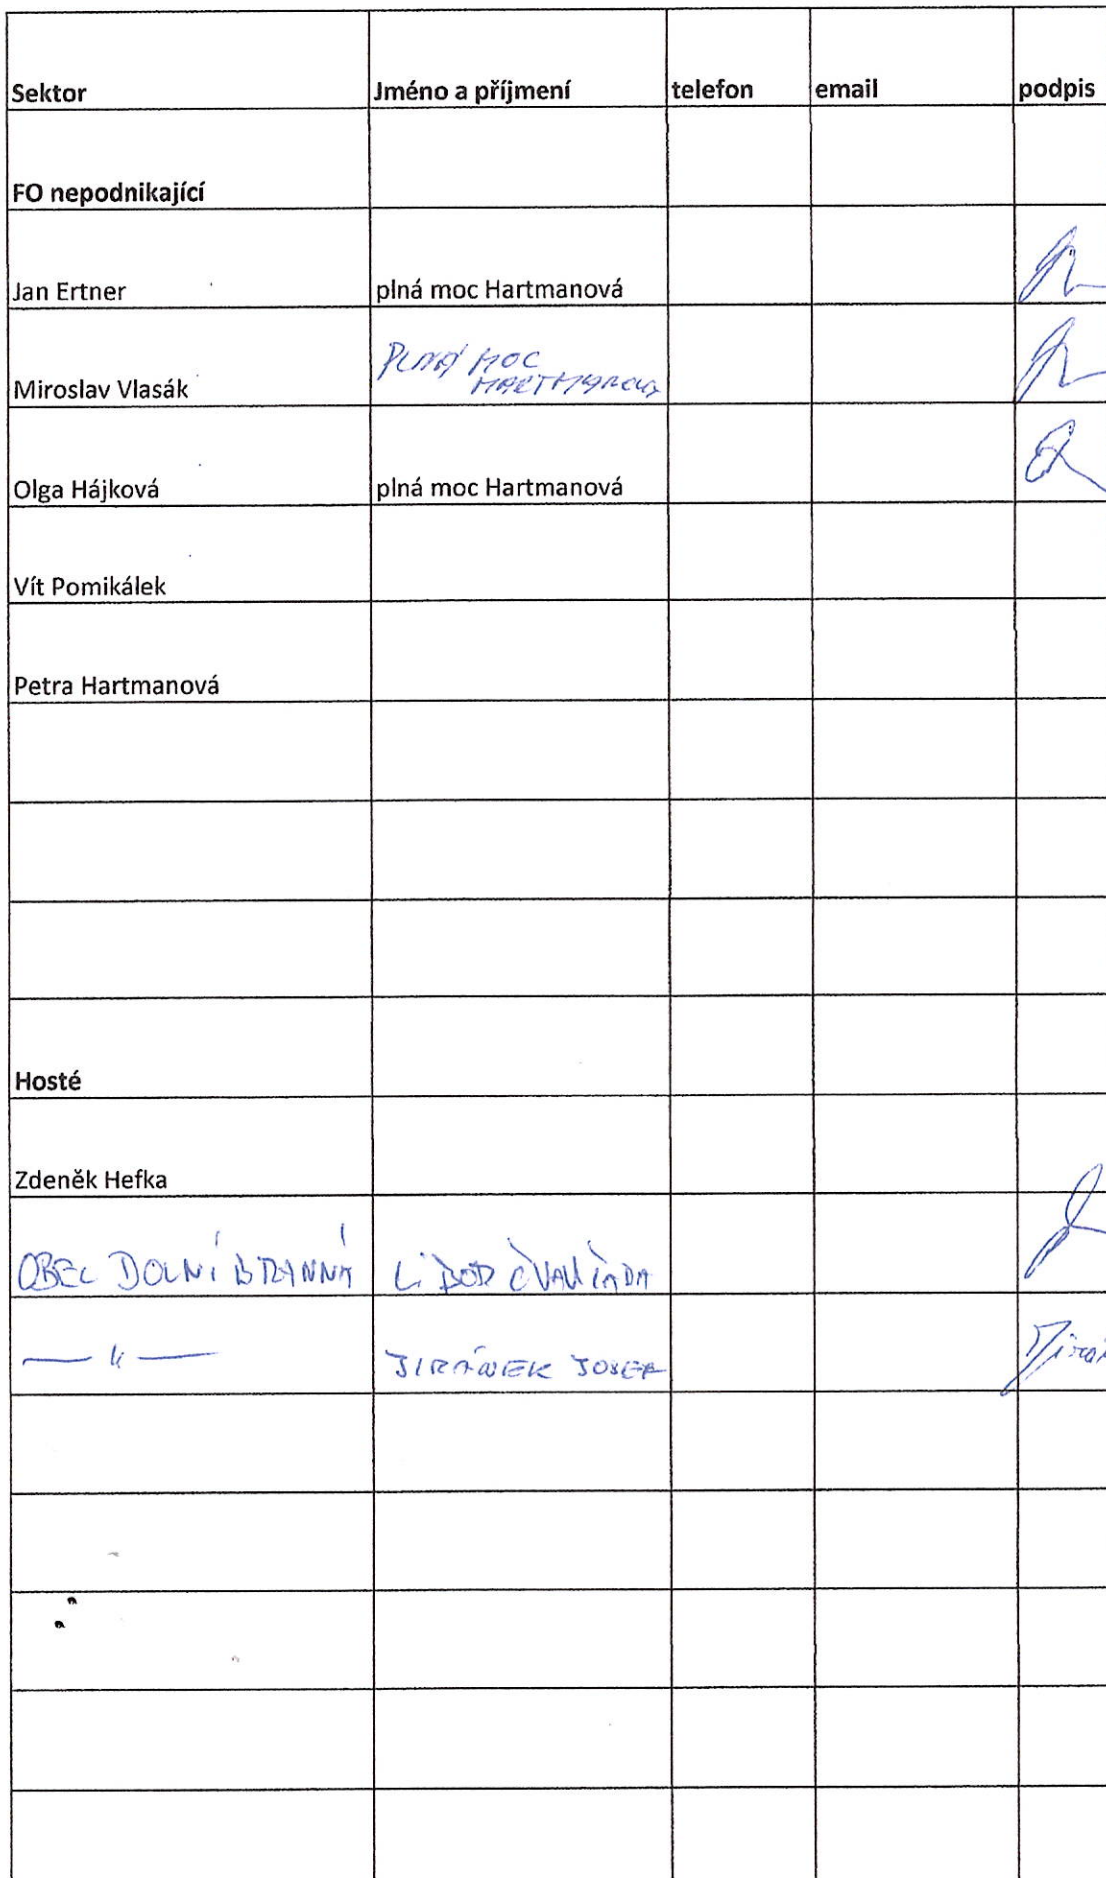 Sektor Jméno a příjmení telefon email podpis
FO nepodnikající
Jan Ertner plná moc Hartmanová
Miroslav Vlasák PLNÁ MOC
HARTMANOVÁ
Olga Hájková plná moc Hartmanová
Vít Pomikálek
Petra Hartmanová
Hosté
Zdeněk Hefka
OBEC DOLNÍ BRANNÁ LIBOR
— " — JIRÁNEK JOSEF